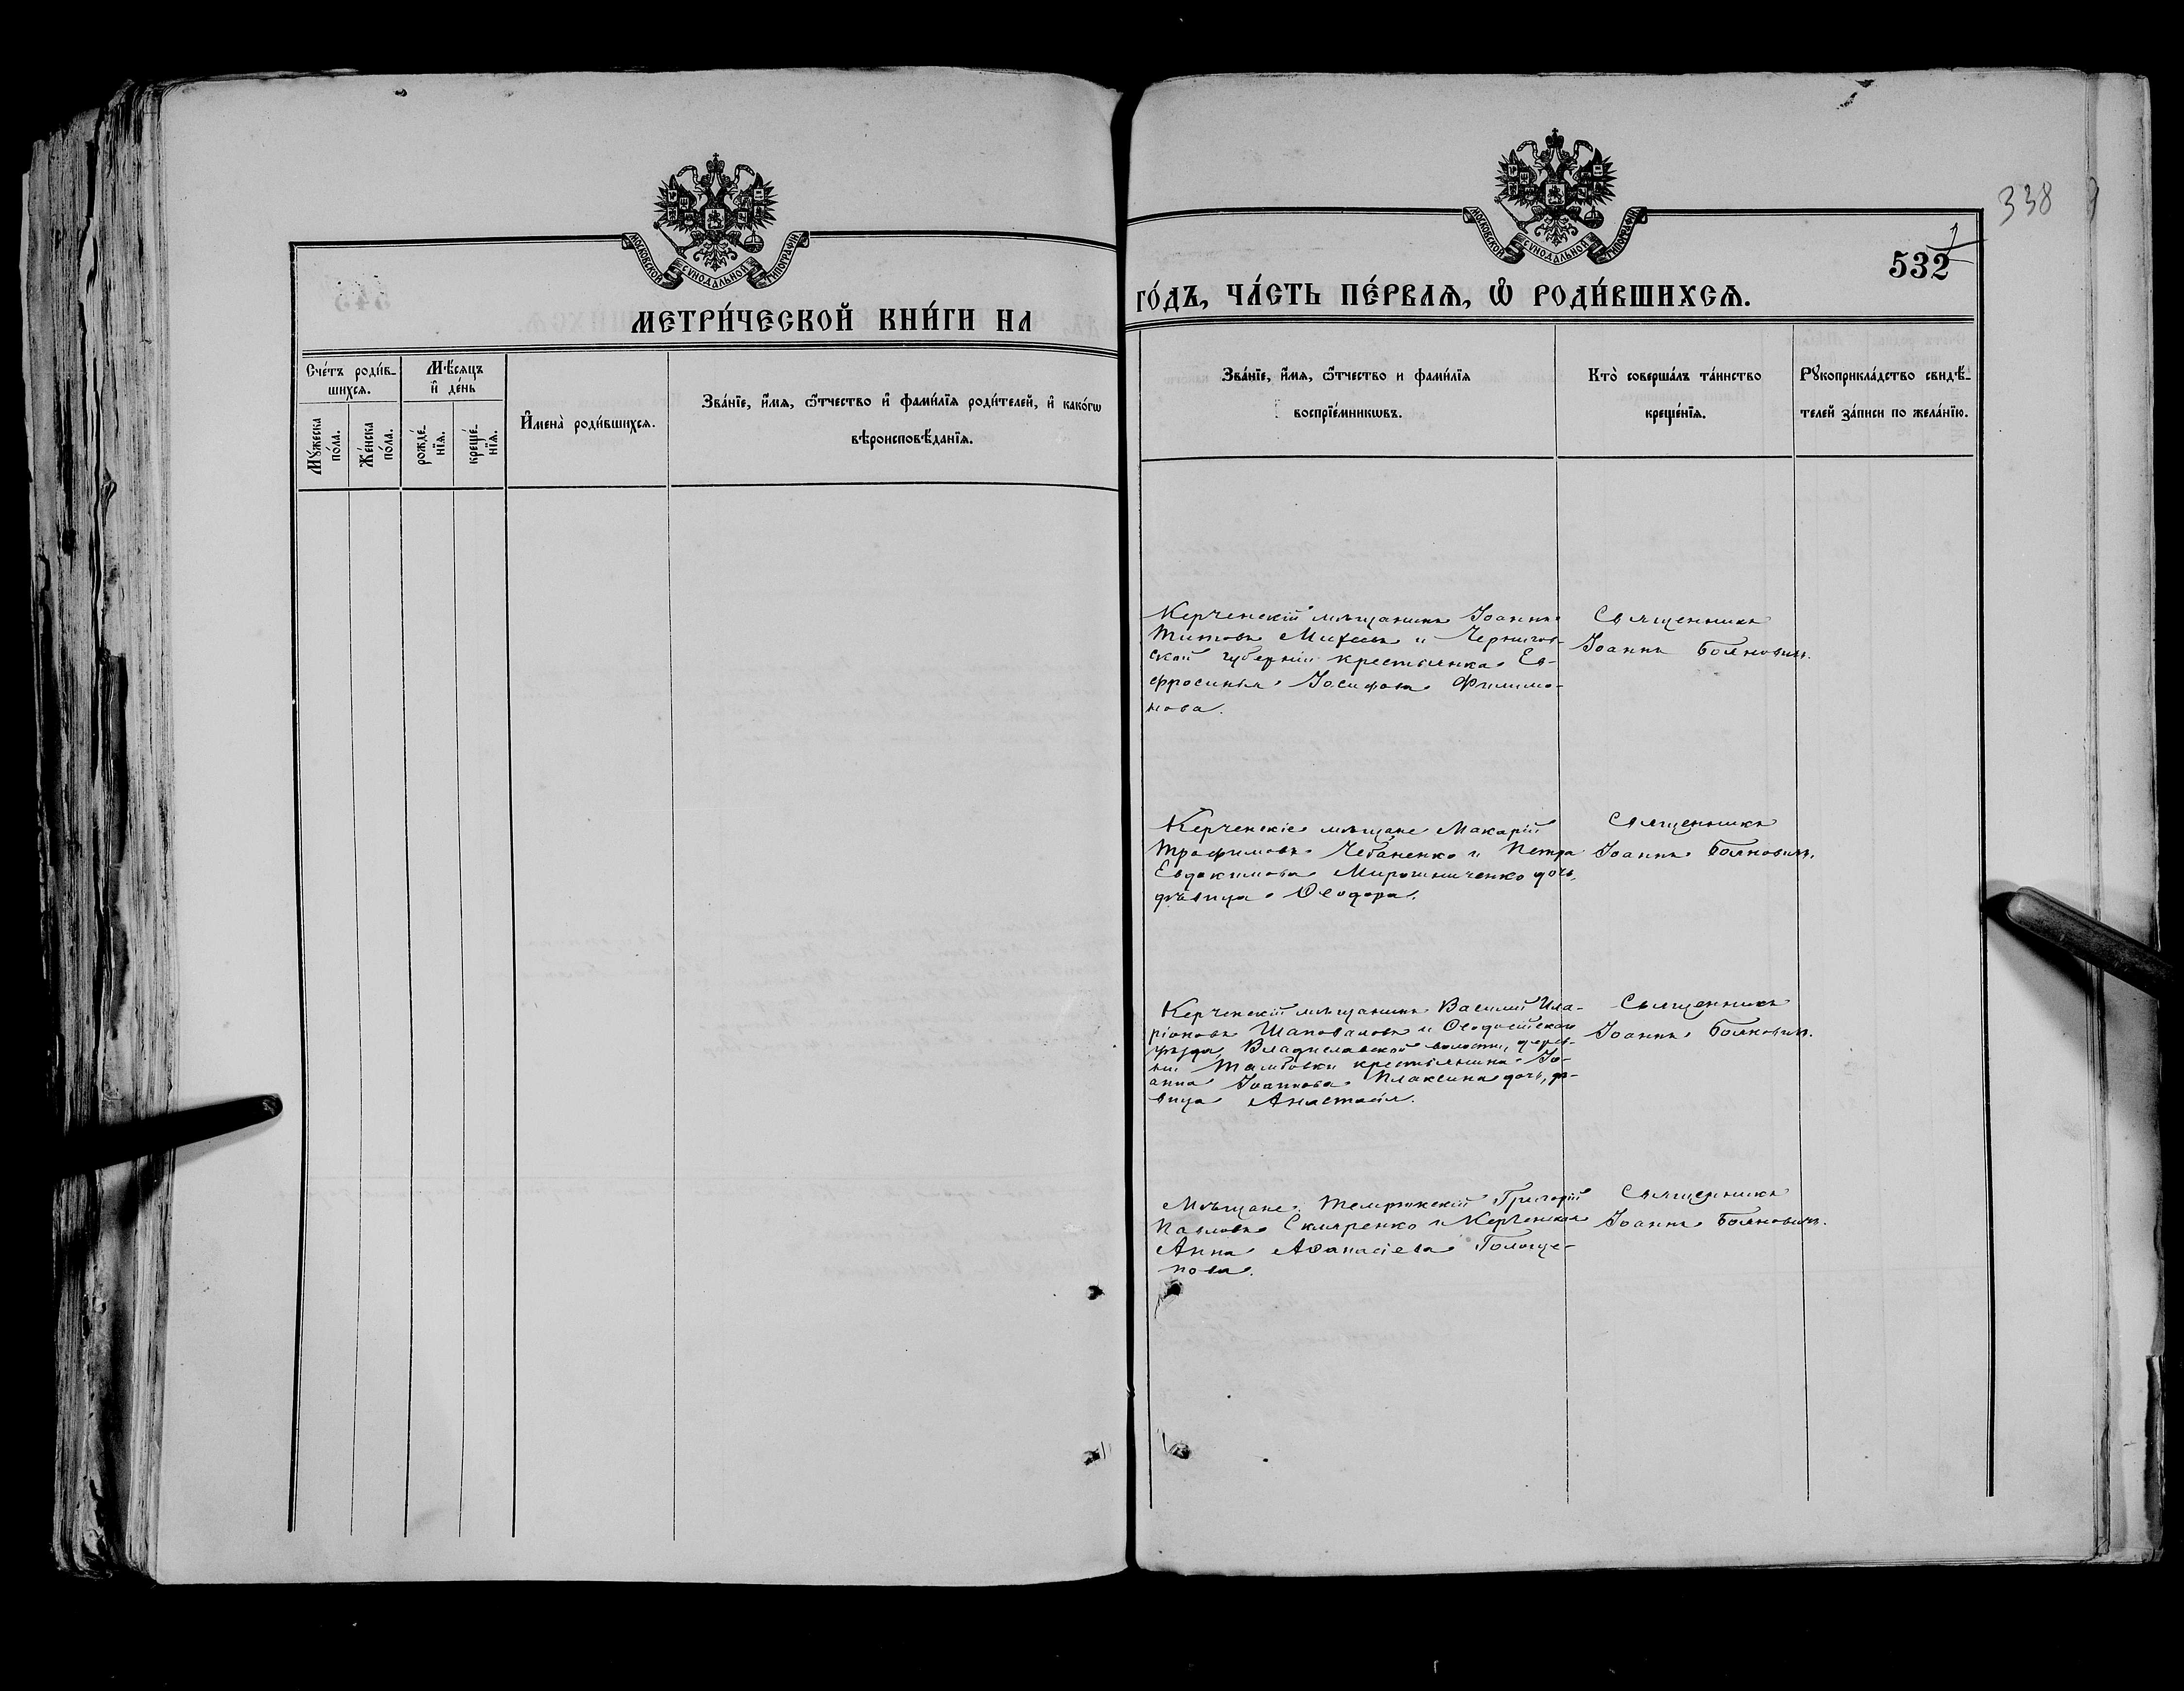 МОСКОВСКОЙ СѴНОДАЛЬНОЙ ТИПОГРАФІИ
МЕТРИ́ЧЕСКОЙ КНИ́ГИ НА
Сче́тъ роди́в-
шихся.
Мѣ́сяцъ
и҆ де́нь
Мꙋ́жеска
по́ла.
Же́нска
по́ла.
рожде́-
нїѧ.
креще́-
нїѧ.
И҆мена̀ роди́вшихся.
Зва́нїе, и҆́мѧ, ѻ҆́тчество и҆ фами́лїѧ роди́телей, и҆ како́гѡ
вѣроисповѣ́данїѧ.
338
МОСКОВСКОЙ СѴНОДАЛЬНОЙ ТИПОГРАФІИ
532
ГО́ДЪ, ЧА́СТЬ ПЕ́РВАѦ, Ѡ҆ РОДИ́ВШИХСѦ.
Зва́нїе, и҆́мѧ, ѻ҆́тчество и фами́лїѧ
воспрїе́мникѡвъ.
Кто̀ соверша́лъ та́инство
креще́нїѧ.
Рꙋкоприкла́дство свидѣ́-
телей за́писи по жела́нїю.
Керченскій мѣщанинъ Іоаннъ
Титовъ Михеевъ и Чернигов-
ской губерніи крестьянка Ев-
фросинья Іосифова Филимо-
нова.
Священникъ
Іоаннъ Бояновичъ.
Керченскіе мѣщане Макарій
Трофимовъ Чебаненко и Петра
Евдокимова Мирошниченко дочь,
дѣвица Ѳеодора.
Священникъ
Іоаннъ Бояновичъ.
Керченскій мѣщанинъ Василій Ила-
ріоновъ Шаповаловъ и Ѳеодосійскаго
уѣзда, Владиславской волости, дерев-
ни Тамбовки крестьянина Іо-
анна Іоаннова Плаксина дочь, дѣ-
вица Анастасія.
Священникъ
Іоаннъ Бояновичъ.
Мѣщане: Темрюкскій Григорій
Павловъ Скляренко и Керченская
Анна Аѳанасіева Голоще-
пова.
Священникъ
Іоаннъ Бояновичъ.